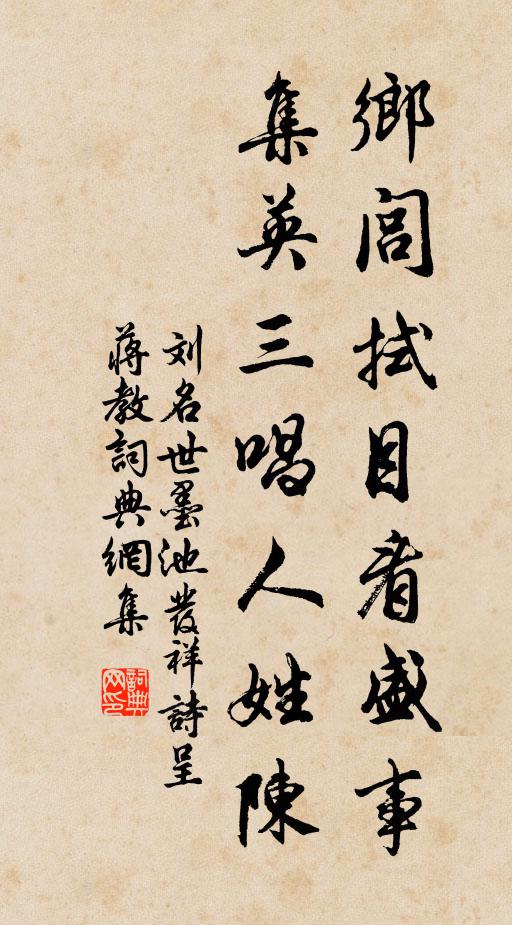 鄉閭拭目看盛事
集英三唱人姓陳
刘名世墨池發祥詩呈
蔣教詞典網集
詞典
网印